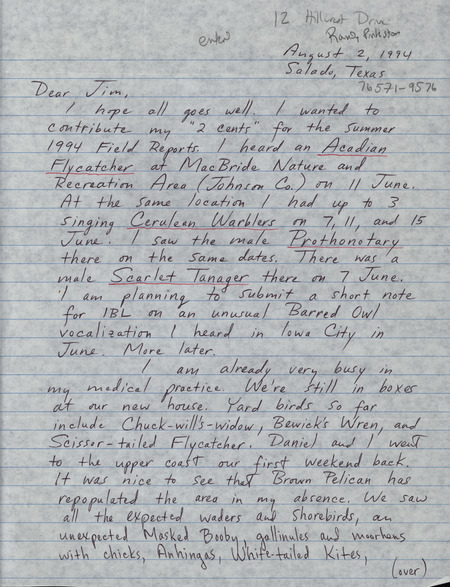 12 Hillcrest Drive
Randy Pinkston
entered
August 2, 1994
Salado, Texas
76571-9576
Dear Jim,
I hope all goes well. I wanted to
contribute my "2 cents" for the summer
1994 Field Reports. I heard an Acadian
Flycatcher at MacBride Nature and
Recreation Area (Johnson Co.) on 11 June.
At the same location I had up to 3
singing Cerulean Warblers on 7, 11, and 15
June. I saw the male Prothonotary
there on the same dates. There was a
male Scarlet Tanager there on 7 June.
I am planning to submit a short note
for IBL on an unusual Barred Owl
vocalization I heard in Iowa City in
June. More later.
I am already very busy in
my medical practice. We're still in boxes
at our new house. Yard birds so far
include Chuck-will's-widow, Bewick's Wren, and
Scissor-tailed Flycatcher. Daniel and I went
to the upper coast our first weekend back.
It was nice to see that Brown Pelican has
repopulated the area in my absence. We saw
all the expected waders and shorebirds, an
unexpected Masked Booby, gallinules and moorhens
with chicks, Anhingas, White-tailed Kites,
(over)